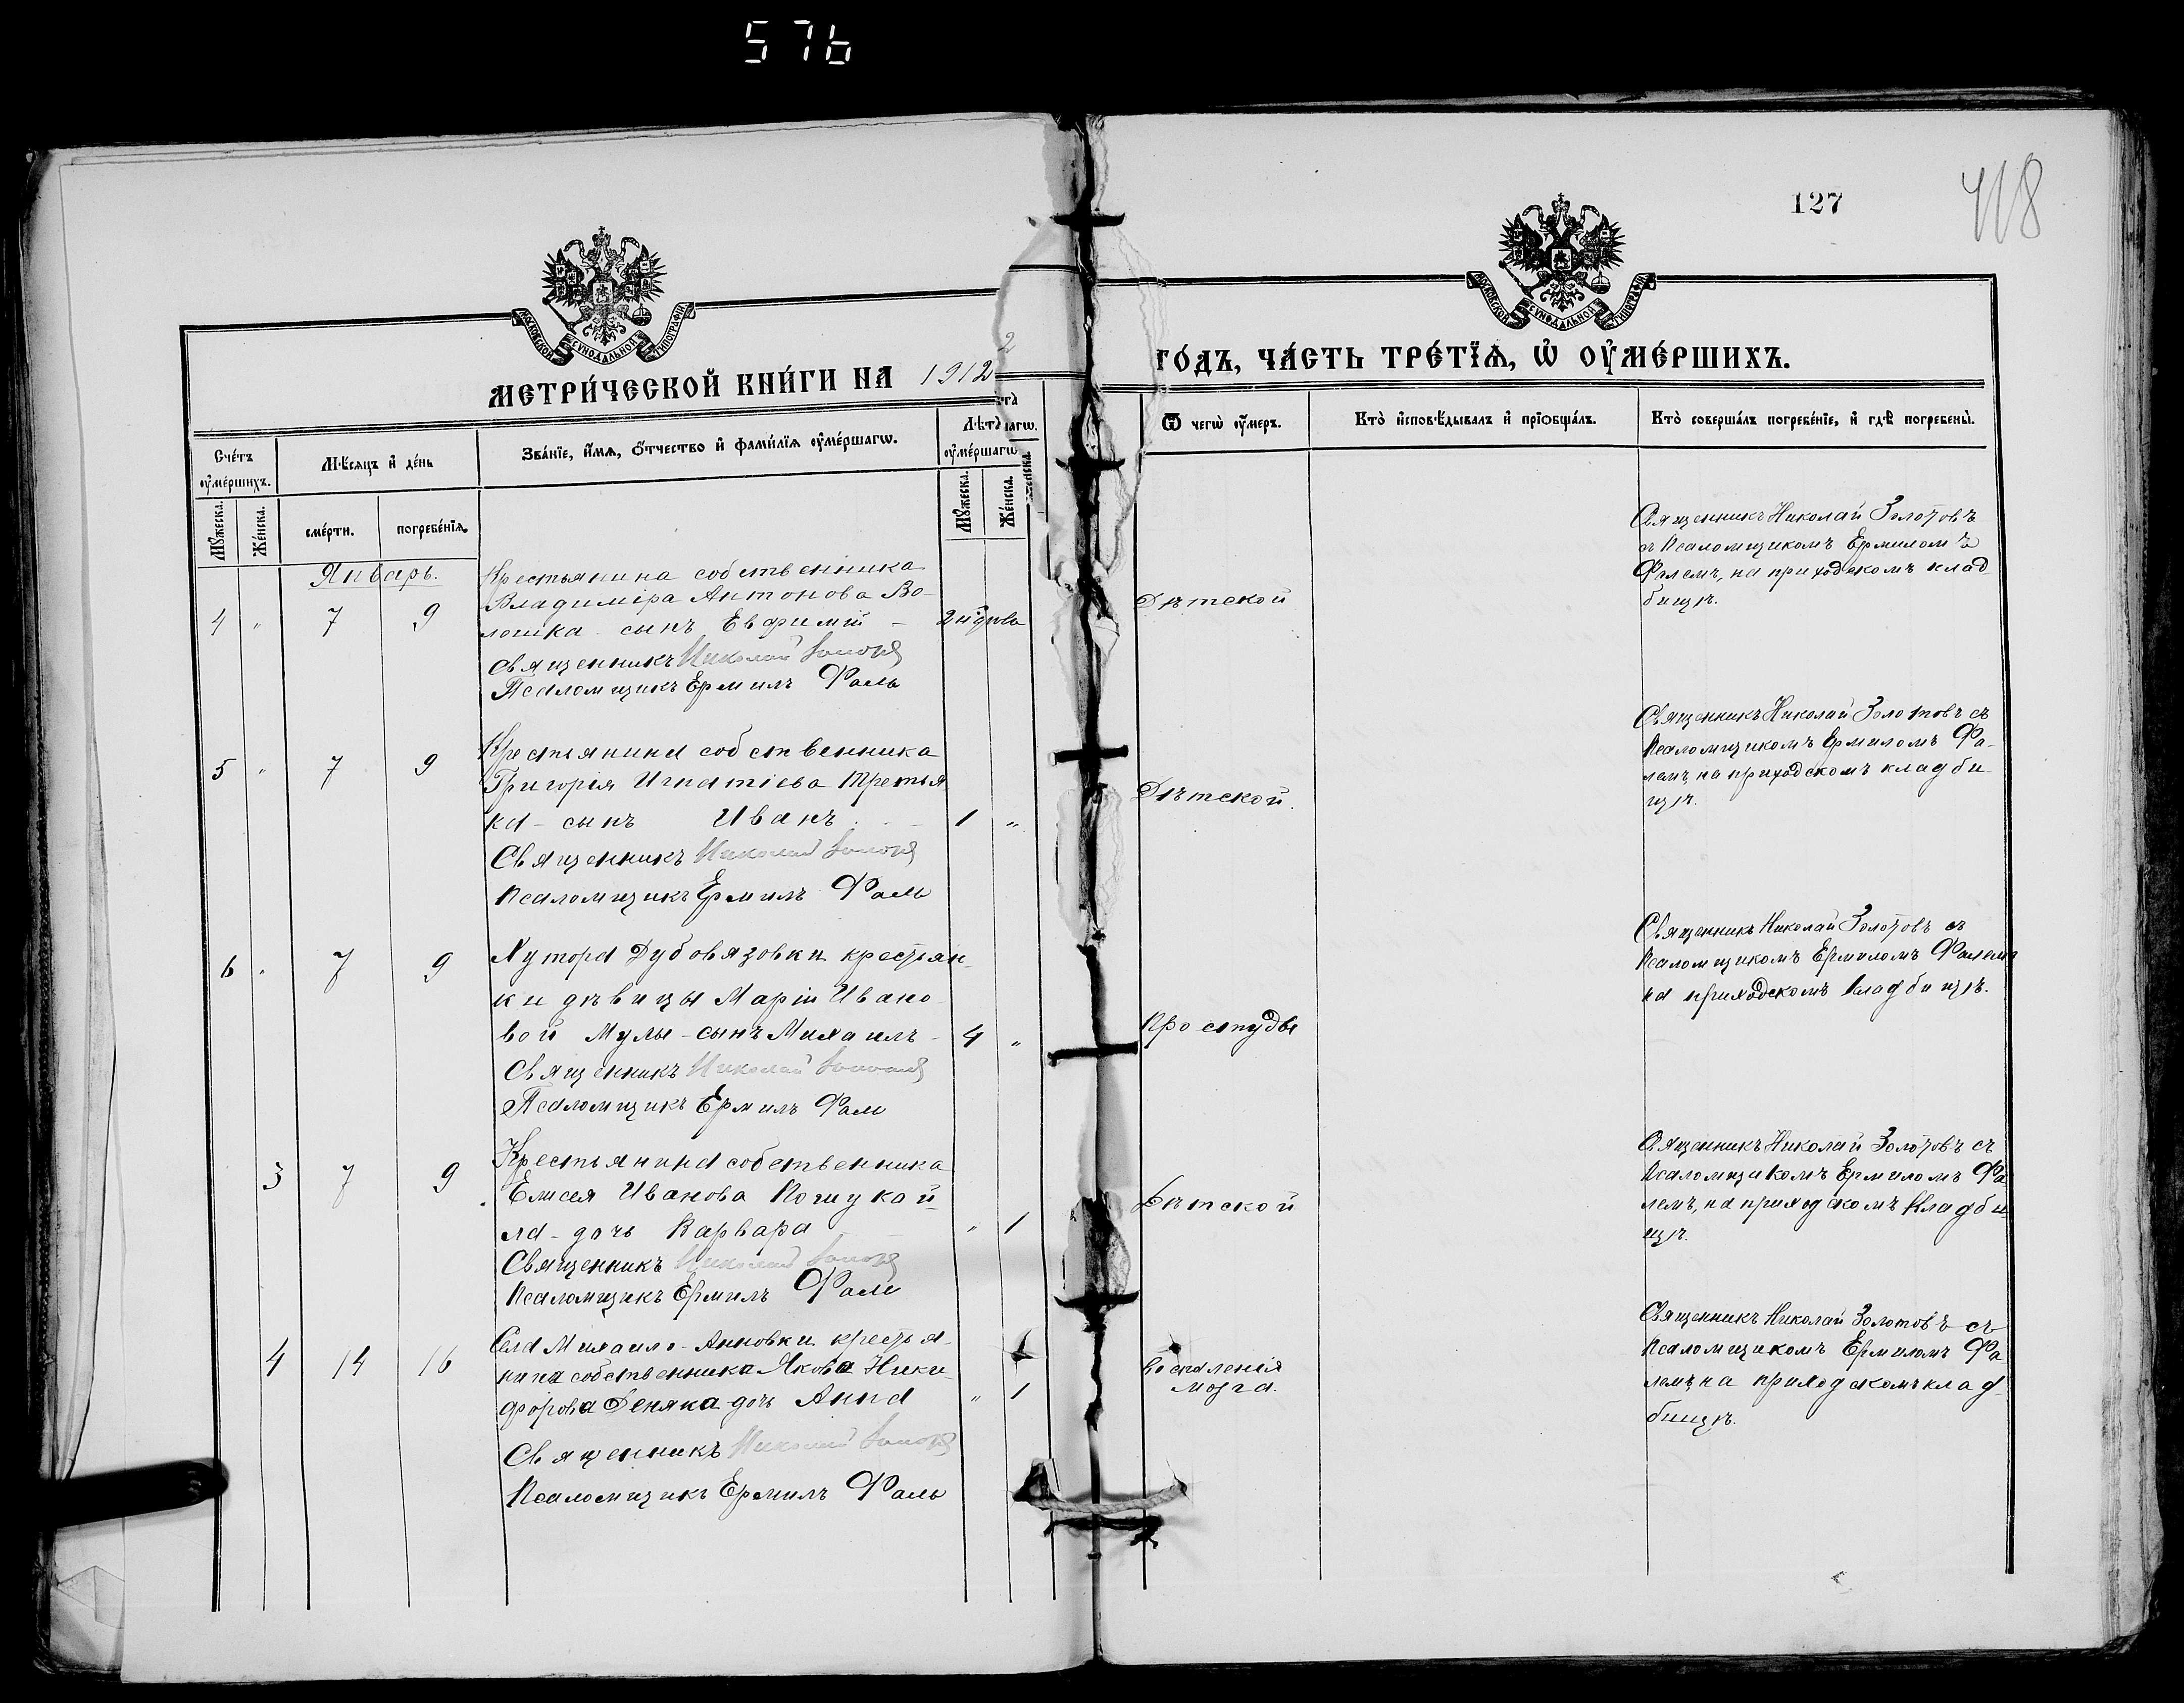 576
127
418
МОСКОВСКОЙ СѴНОДАЛЬНОЙ ТИПОГРАФІИ
МОСКОВСКОЙ СѴНОДАЛЬНОЙ ТИПОГРАФІИ
МЕТРИ́ЧЕСКОЙ КНИ́ГИ НА 1912
ГО́ДЪ, ЧА́СТЬ ТРЕ́ТЇѦ, Ѡ҆ ОУ҆МЕ́РШИХЪ.
Сче́тъ оу҆ме́ршихъ.
Мѣ́сяцъ и҆ де́нь
Зва́нїе, и҆́мѧ, ѻ҆́тчество и҆ фами́лїѧ оу҆ме́ршагѡ.
Лѣ́та оу҆ме́ршагѡ
Ѿ чегѡ̀ оу҆́меръ.
Кто̀ и҆сповѣ́дывалъ и҆ прїѡбща́лъ.
Кто̀ соверша́лъ погребе́нїе, и҆ гдѣ̀ погребены̀.
Мꙋ́жеска.
Же́нска.
сме́рти.
погребе́нїѧ.
Мꙋ́жеска.
Же́нска.
Январь.
4 " 7 9
Крестьянина собственника
Владиміра Антонова Во-
лошка сынъ Евфимій -
Священникъ Николай Золотовъ
Псаломщикъ Ермилъ Фаль
2 й дня
Дѣтской
Священникъ Николай Золотовъ
съ Псаломщикомъ Ермиломъ
Фалемъ, на приходскомъ клад
бищѣ.
5 " 7 9
Крестьянина собственника
Григорія Игнатіева Третья
ка - сынъ Иванъ
Священникъ Николай Золотовъ
Псаломщикъ Ермилъ Фаль
1 "
Дѣтской.
Священникъ Николай Золотовъ съ
Псаломщикомъ Ермиломъ Фа-
лемъ, на приходскомъ кладби-
щѣ.
6 " 7 9
Хутора Дубовязовки крестьян-
ки дѣвицы Маріи Ивано-
вой Мулы - сынъ Михаилъ -
Священникъ Николай Золотовъ
Псаломщикъ Ермилъ Фаль
4 "
Простуды
Священникъ Николай Золотовъ съ
Псаломщикомъ Ермиломъ Фалемъ
на приходскомъ кладбищѣ.
3 7 9
Крестьянина собственника
Елисея Иванова Пошукай-
ла - дочь Варвара
Священникъ Николай Золотовъ
Псаломщикъ Ермилъ Фаль
" 1
Дѣтской
Священникъ Николай Золотовъ съ
Псаломщикомъ Ермиломъ Фа
лемъ, на приходскомъ кладби
щѣ.
4 14 16
Села Михаило-Анновки крестья-
нина собственника Якова Ники
форова Деняка - дочь Анна
Священникъ Николай Золотовъ
Псаломщикъ Ермилъ Фаль
" 1
Воспаленія
мозга.
Священникъ Николай Золотовъ съ
Псаломщикомъ Ермиломъ Фа
лемъ, на приходскомъ клад
бищѣ.